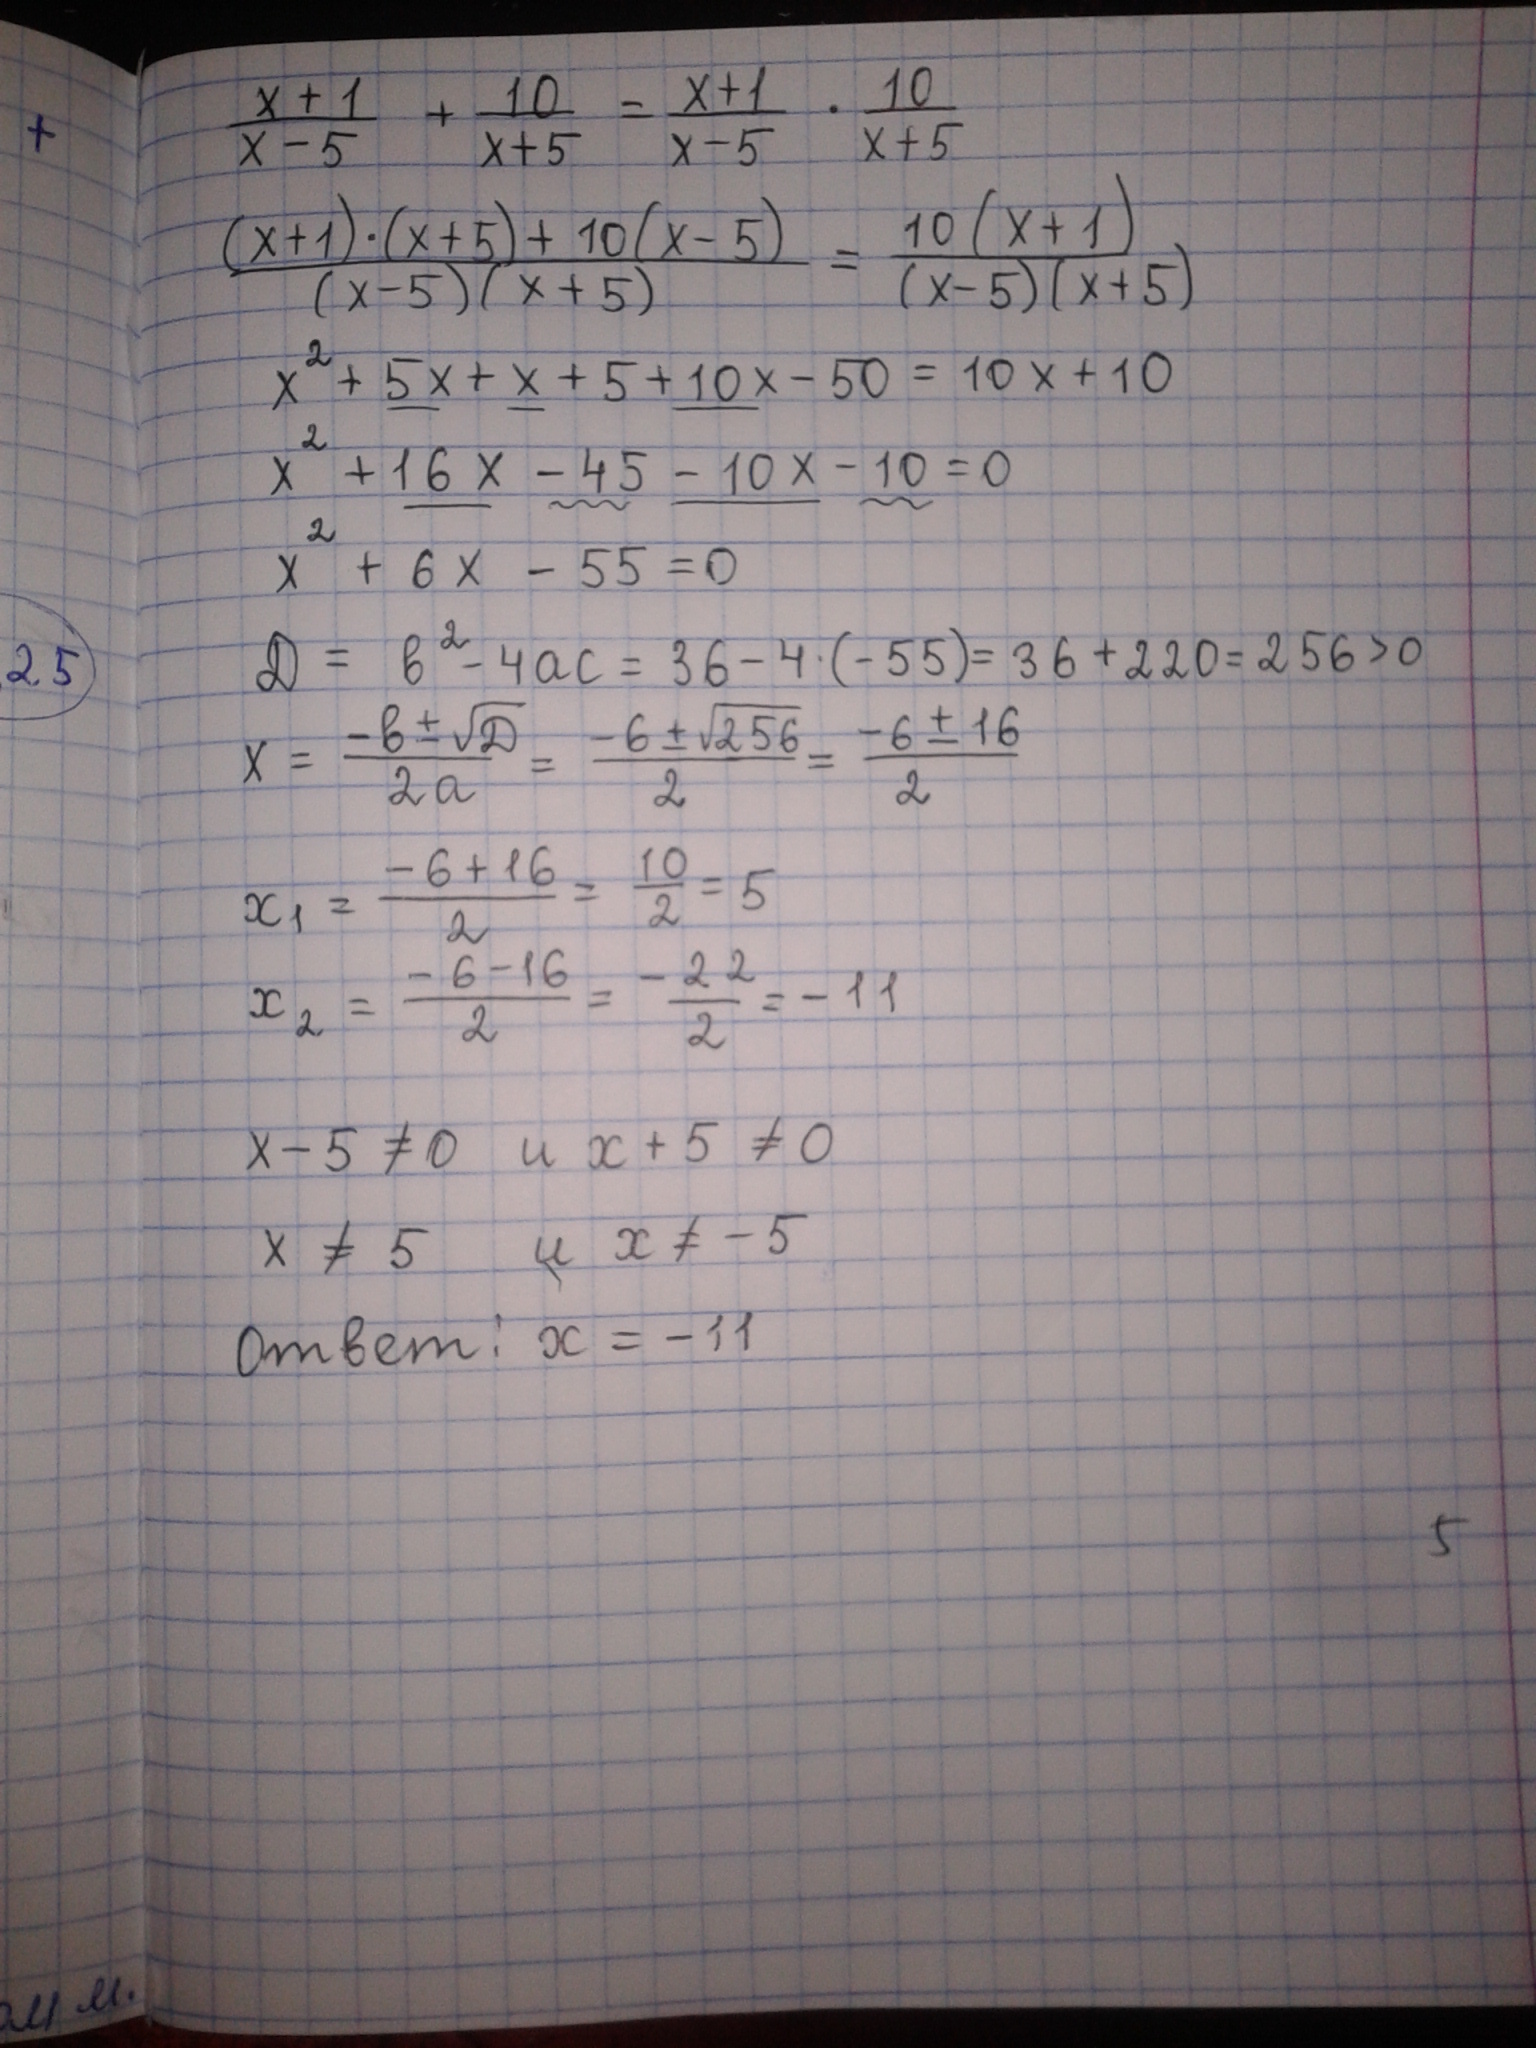 +
25
ом м.
x+1/x-5 + 10/x+5 = x+1/x-5 · 10/x+5
(x+1)·(x+5)+10(x-5)/(x-5)(x+5) = 10(x+1)/(x-5)(x+5)
x² + 5x + x + 5 + 10x - 50 = 10x + 10
x² + 16x - 45 - 10x - 10 = 0
x² + 6x - 55 = 0
D = в² - 4ac = 36 - 4·(-55) = 36 + 220 = 256 > 0
x = -в±√D/2a = -6±√256/2 = -6±16/2
x₁ = -6+16/2 = 10/2 = 5
x₂ = -6-16/2 = -22/2 = -11
x - 5 ≠ 0 и x + 5 ≠ 0
x ≠ 5 и x ≠ -5
Ответ: x = -11
5